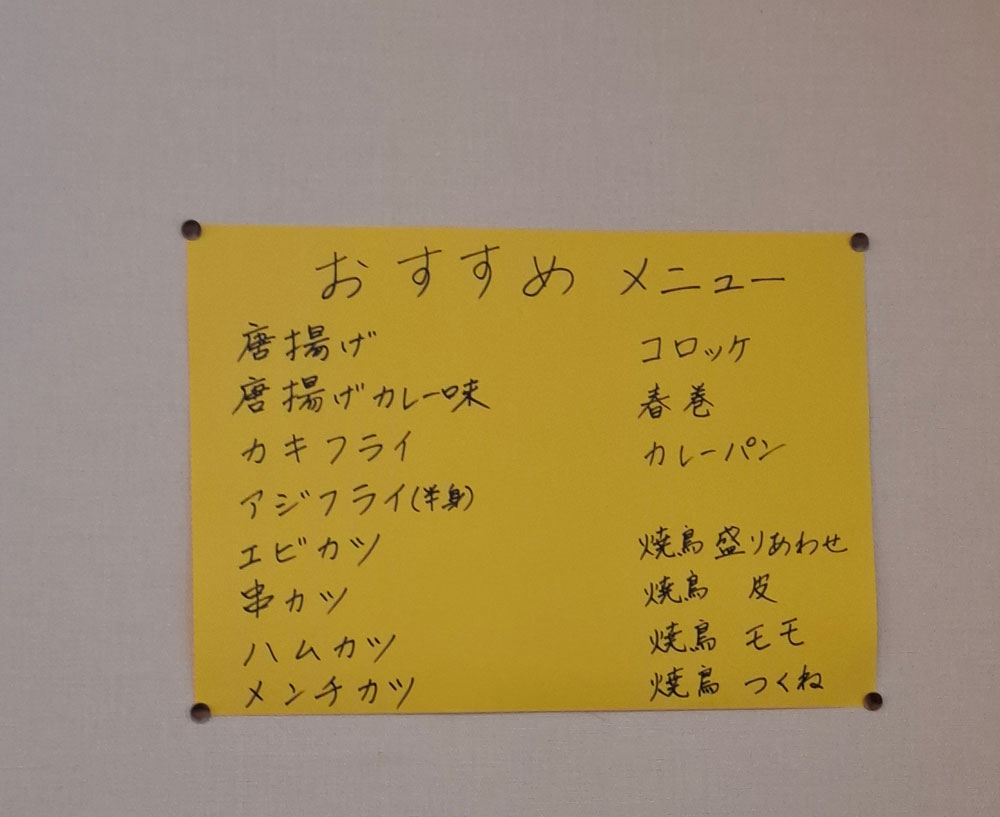 おすすめ メニュー
唐揚げ
唐揚げカレー味
カキフライ
アジフライ(半身)
エビカツ
串カツ
ハムカツ
メンチカツ
コロッケ
春巻
カレーパン
焼鳥盛りあわせ
焼鳥 皮
焼鳥 モモ
焼鳥 つくね